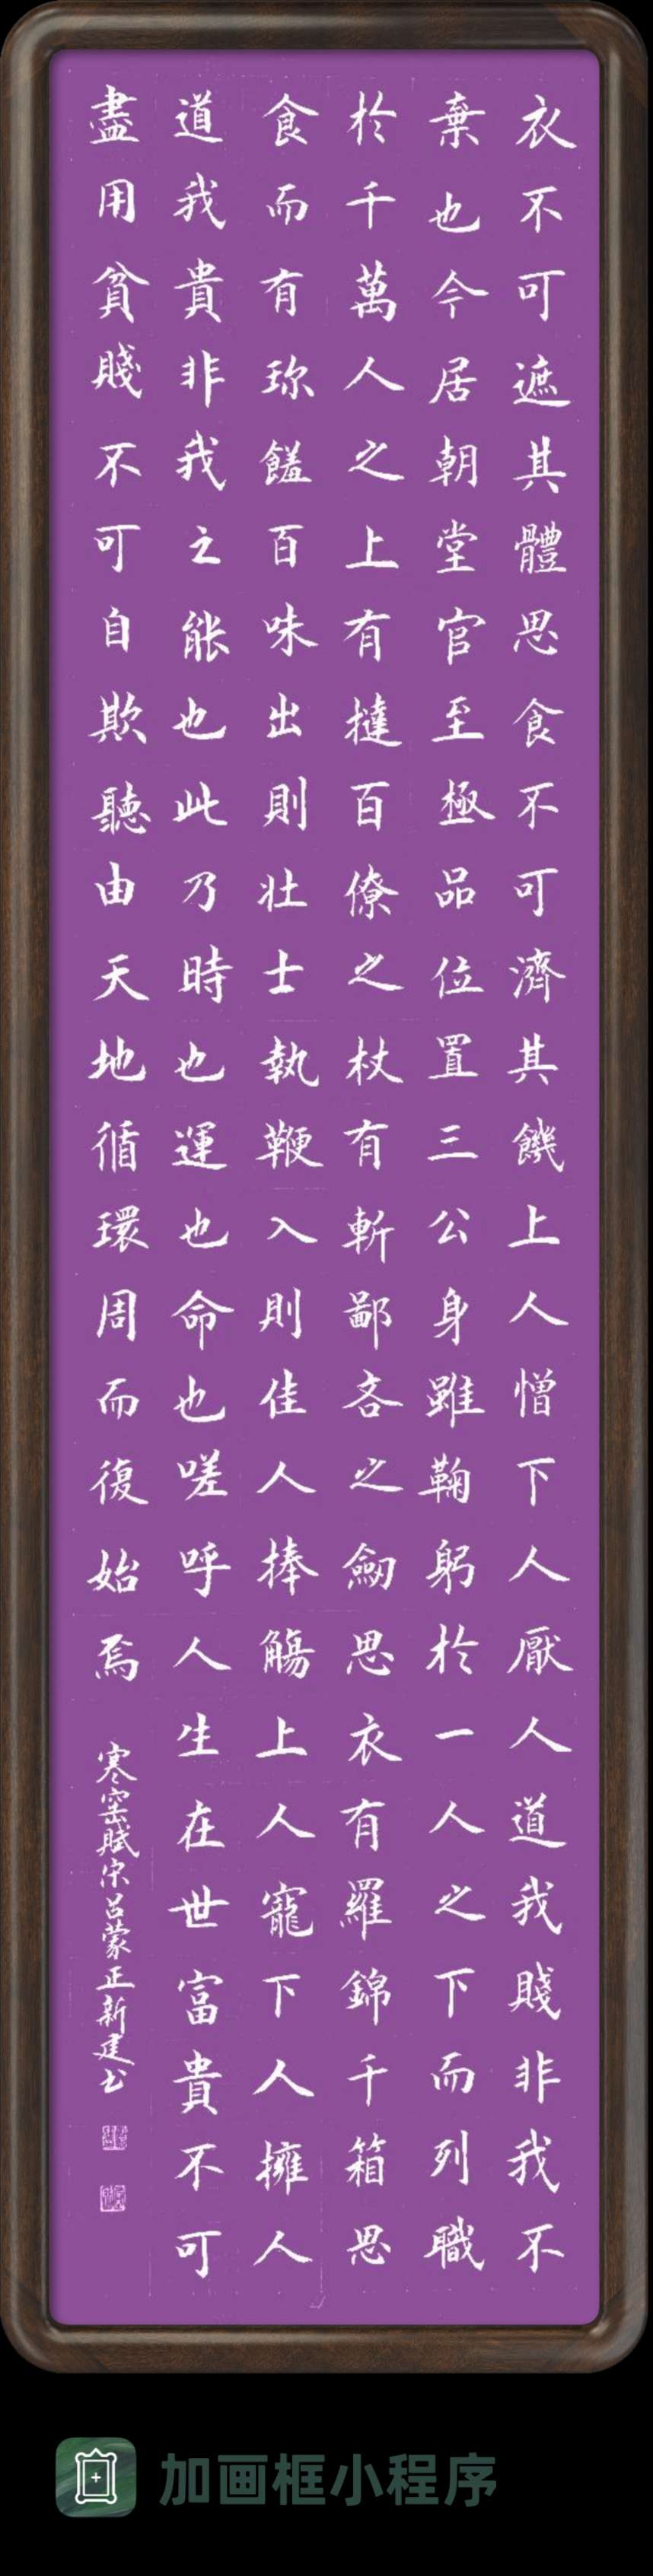 衣不可遮其體思食不可濟其饑上人憎下人厭人道我賤非我不
棄也今居朝堂官至極品位置三公身雖鞠躬於一人之下而列職
於千萬人之上有撻百僚之杖有斬鄙吝之劒思衣有羅錦千箱思
食而有珎饈百味出則壯士執鞭入則佳人捧觴上人寵下人擁人
道我貴非我之能也此乃時也運也命也嗟呼人生在世富貴不可
盡用貧賤不可自欺聽由天地循環周而復始焉
寒窑賦宋呂蒙正新建书
加画框小程序